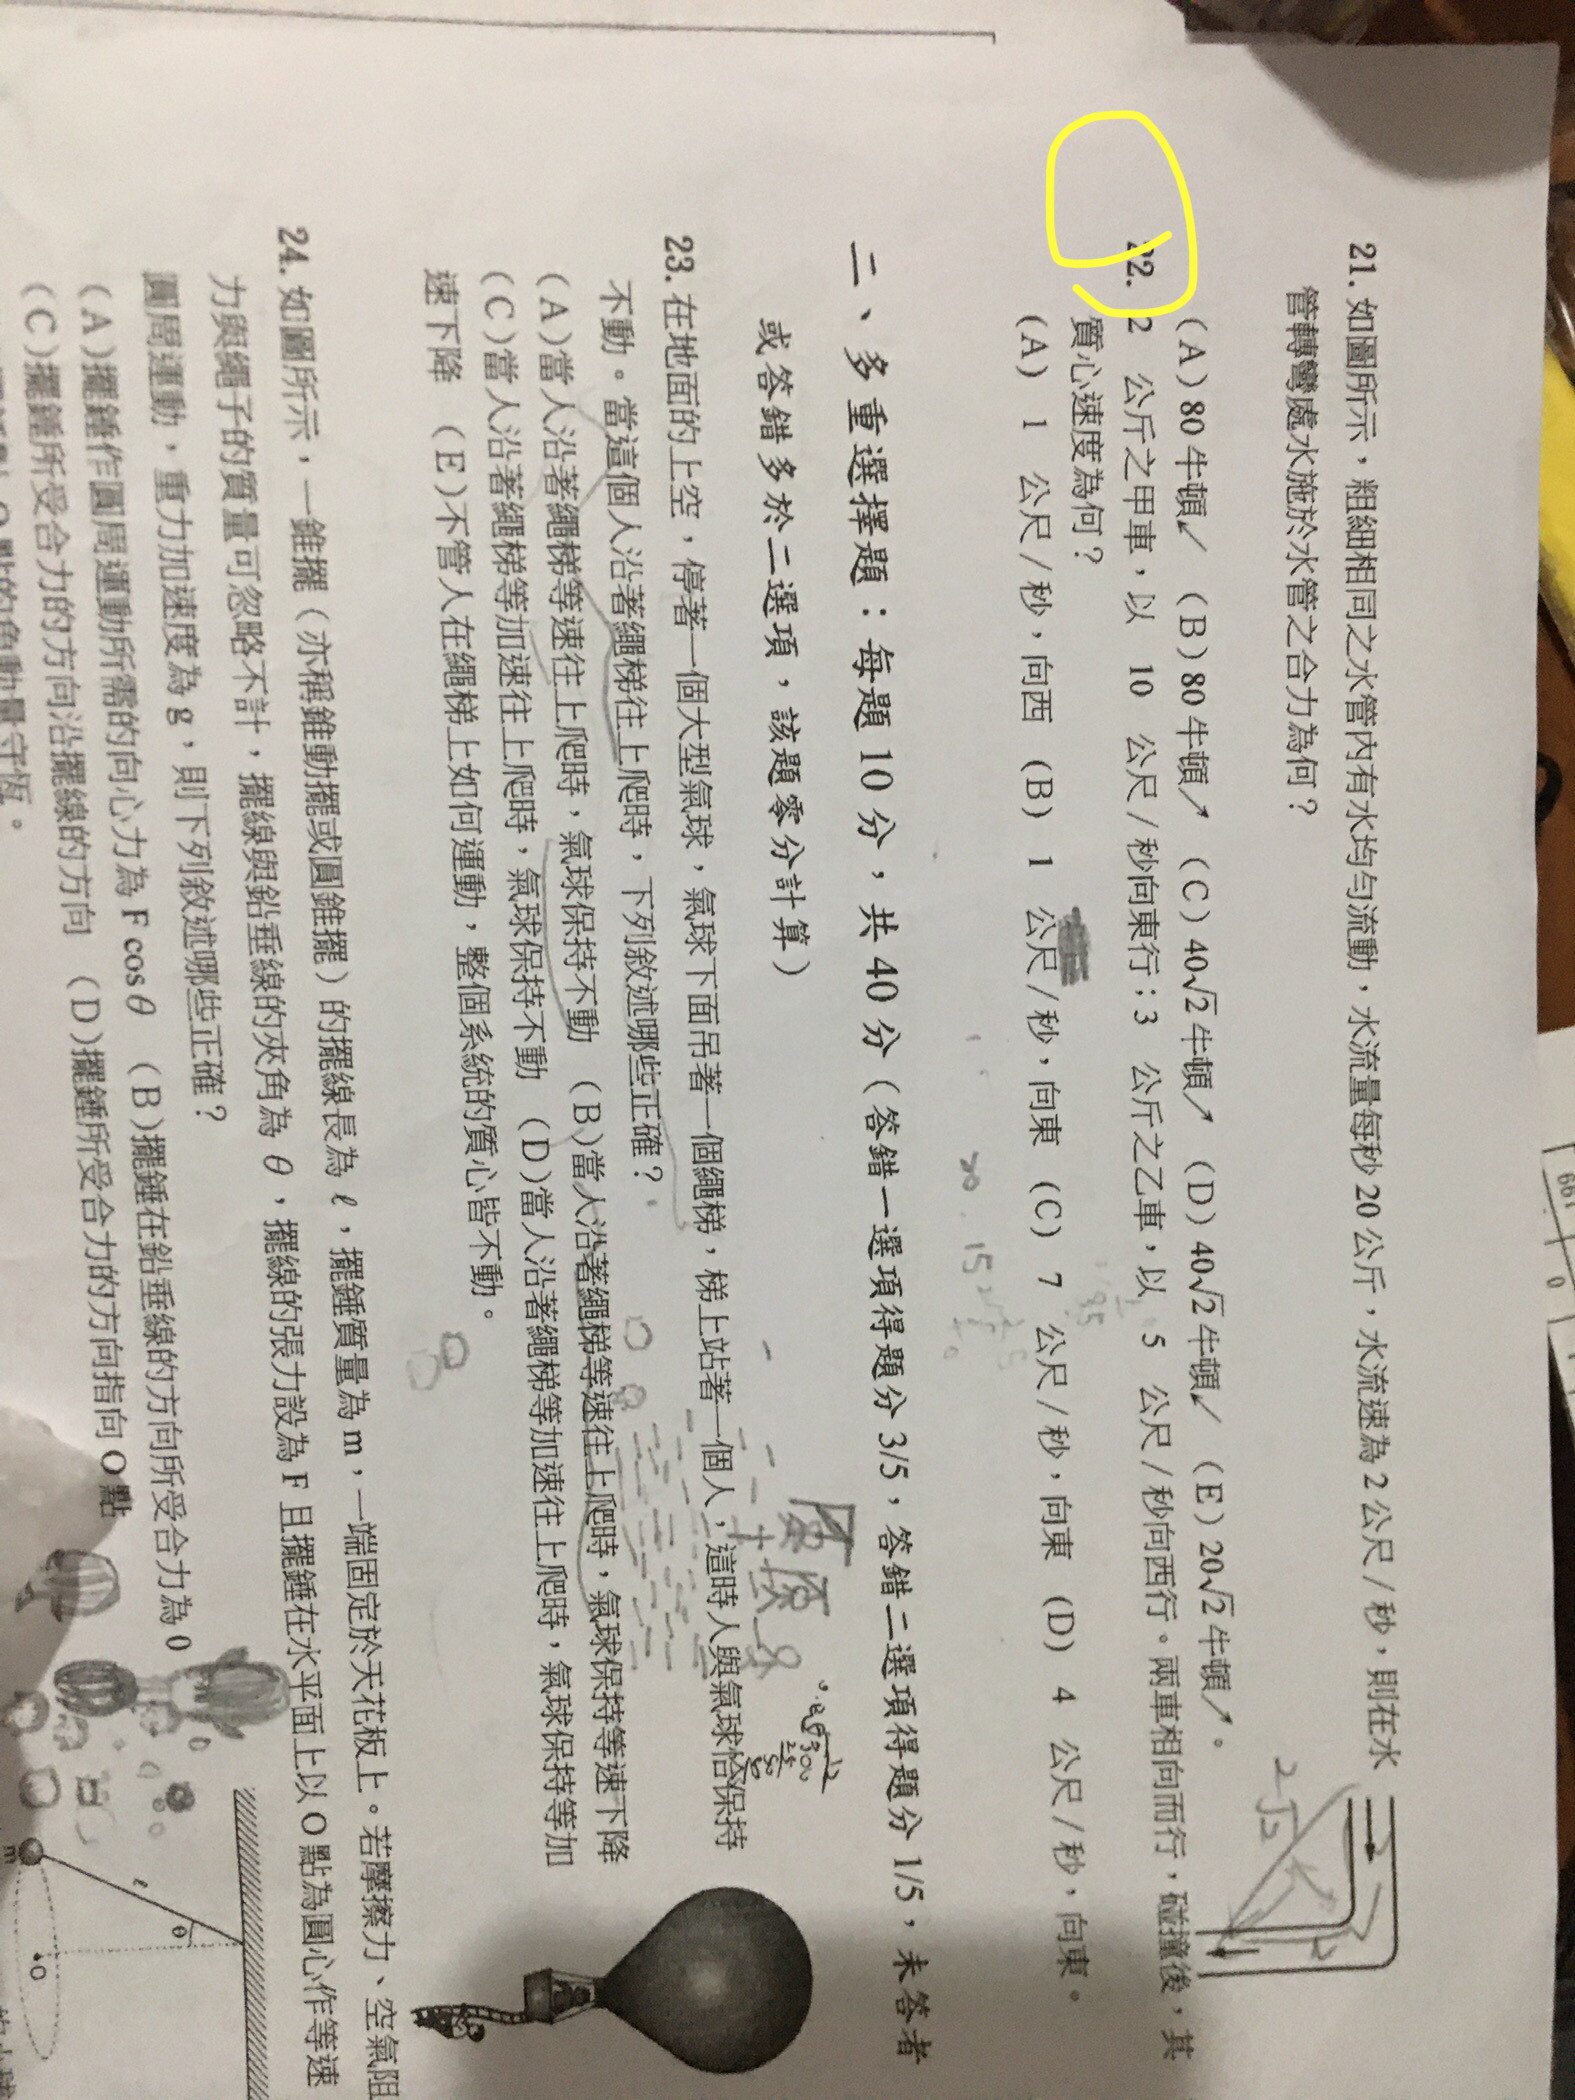 21. 如圖所示，粗細相同之水管內有水均勻流動，水流量每秒 20 公斤，水流速為 2 公尺/秒，則在水
管轉彎處水施於水管之合力為何？
(A) 80 牛頓↙ (B) 80 牛頓↗ (C) 40√2 牛頓↗ (D) 40√2 牛頓↙ (E) 20√2 牛頓↗。
22. 2 公斤之甲車，以 10 公尺/秒向東行；3 公斤之乙車，以 5 公尺/秒向西行。兩車相向而行，碰撞後，其
質心速度為何？
(A) 1 公尺/秒，向西 (B) 1 公尺/秒，向東 (C) 7 公尺/秒，向東 (D) 4 公尺/秒，向東。
20. 15
2√2
二、多重選擇題：每題 10 分，共 40 分（答錯一選項得題分 3/5，答錯二選項得題分 1/5，未答者
或答錯多於二選項，該題零分計算）
23. 在地面的上空，停著一個大型氣球，氣球下面吊著一個繩梯，梯上站著一個人，這時人與氣球恰保持
不動。當這個人沿著繩梯往上爬時，下列敘述哪些正確？
(A)當人沿著繩梯等速往上爬時，氣球保持不動 (B)當人沿著繩梯等速往上爬時，氣球保持等速下降
(C)當人沿著繩梯等加速往上爬時，氣球保持不動 (D)當人沿著繩梯等加速往上爬時，氣球保持等加
速下降 (E)不管人在繩梯上如何運動，整個系統的質心皆不動。
24. 如圖所示，一錐擺（亦稱錐動擺或圓錐擺）的擺線長為 ℓ，擺錘質量為 m，一端固定於天花板上。若摩擦力、空氣阻
力與繩子的質量可忽略不計，擺線與鉛垂線的夾角為 θ，擺線的張力設為 F 且擺錘在水平面上以 O 點為圓心作等速
圓周運動，重力加速度為 g，則下列敘述哪些正確？
(A)擺錘作圓周運動所需的向心力為 F cosθ (B)擺錘在鉛垂線的方向所受合力為 0
(C)擺錘所受合力的方向沿擺線的方向 (D)擺錘所受合力的方向指向 O 點
點的角動量守恆。
θ
ℓ
m
O
661
0